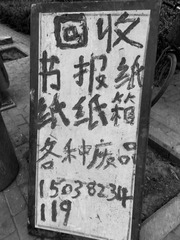 回收
书报纸
纸纸箱
各种废品
15038234
119